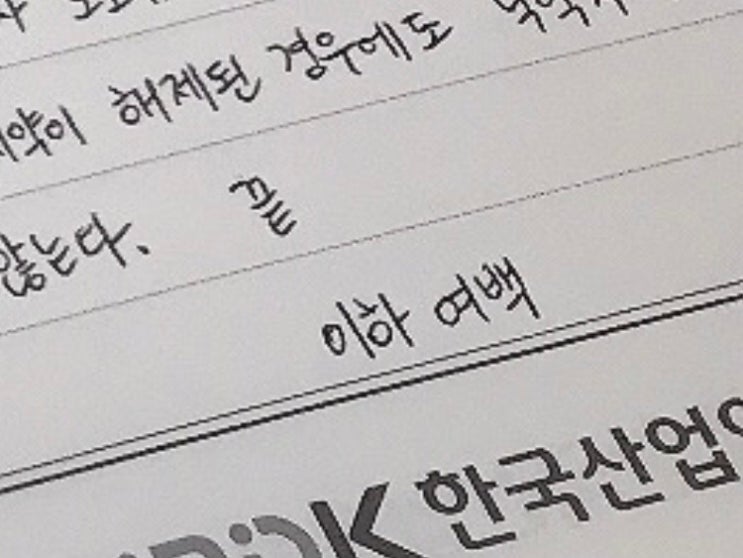 해제된 경우에도
않는다. 끝
이하 여백
한국산업